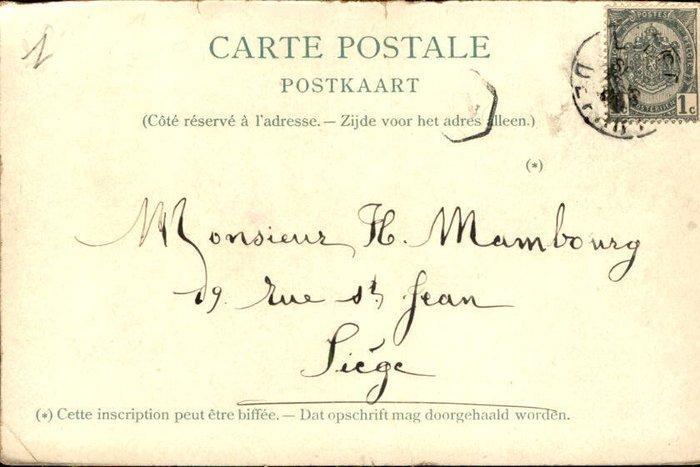 1
CARTE POSTALE
POSTKAART
(Côté réservé à l'adresse. — Zijde voor het adres alleen.)
(*)
POSTES
1c
DÉPART
Monsieur H. Mambourg
19. rue st Jean
Liége
(*) Cette inscription peut être biffée. — Dat opschrift mag doorgehaald worden.